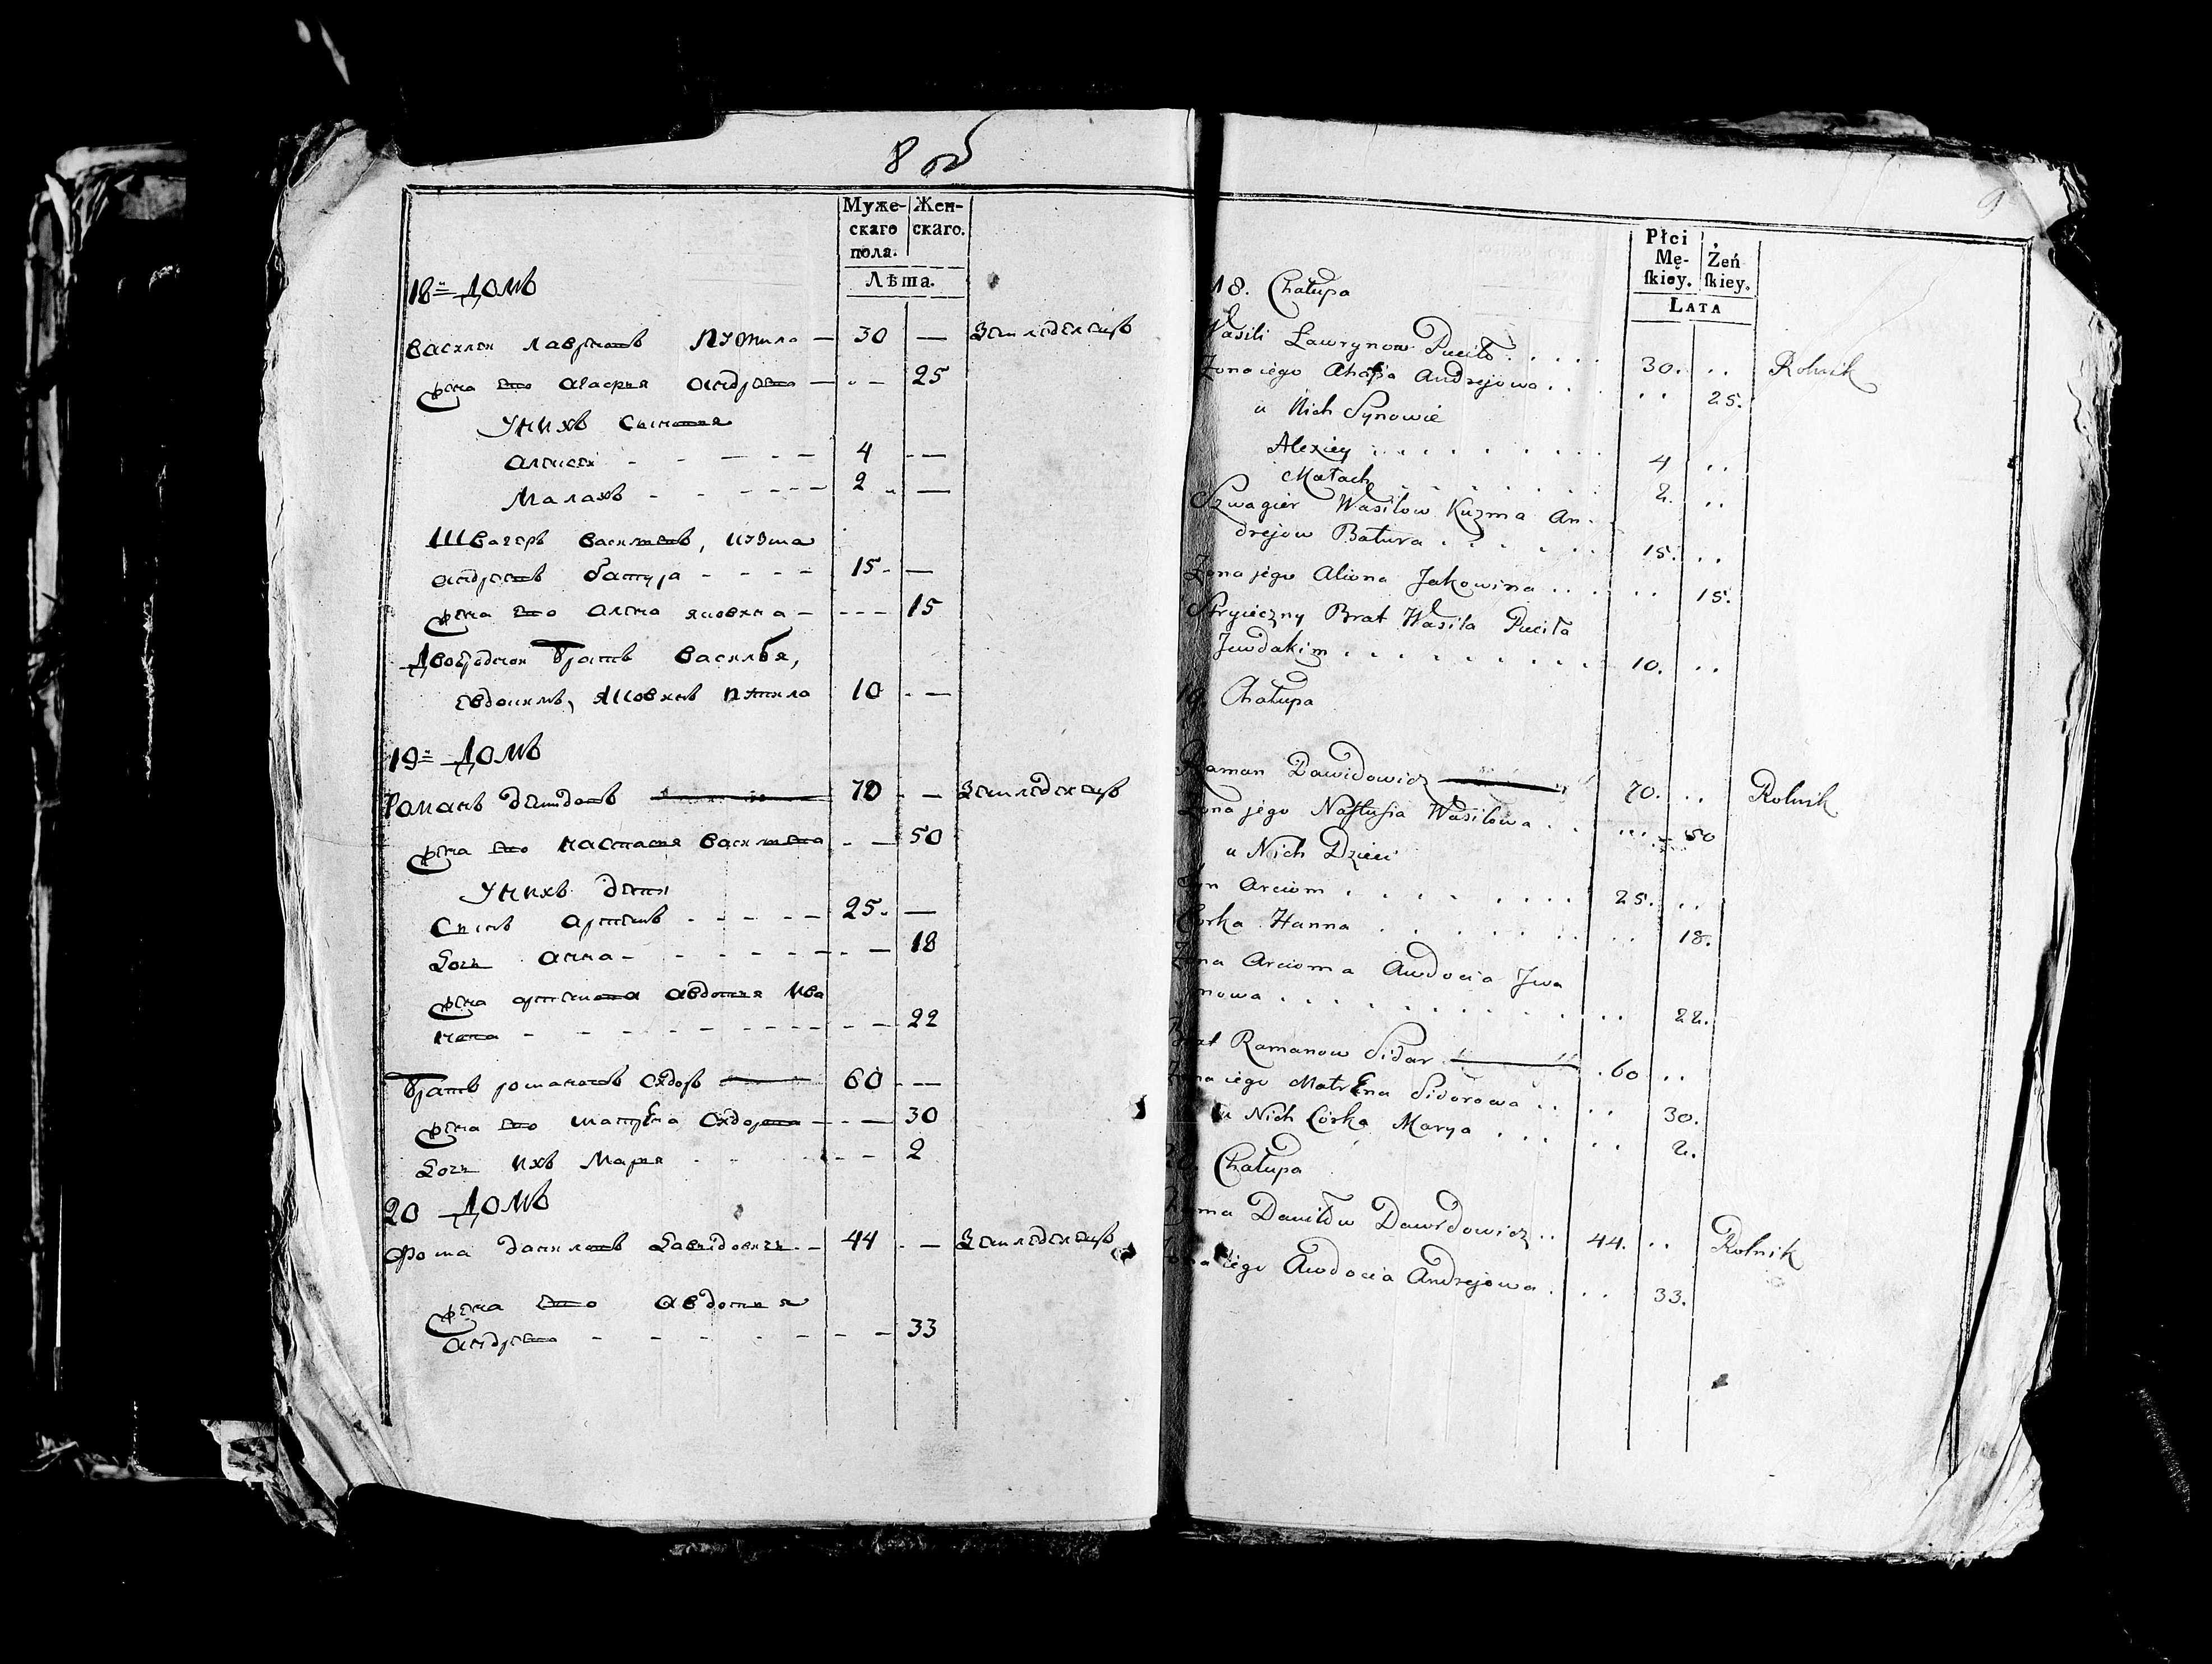 8 об
Муже- Жен-
скаго скаго.
пола.
Лѣта.
18й Домъ
Василей Лавреновъ Путило — 30 — Земледелецъ
Жена Его Агафия Андреева — 25
У нихъ Сыновья
Алексей 4 —
Малахъ 2 —
Швагеръ Васильевъ, Кузма
Андреевъ Батура 15 —
Жена Его Алена Яковина 15
Двоюродной Братъ Василья,
Евдокимъ, Яковинъ Путило 10 —
19й Домъ
Романъ Демидовъ 70 — Земледелецъ
Жена Его Настасия Васильева 50
У нихъ Дети
Сынъ Артемъ 25 —
Дочь Анна 18
Жена Артемова Авдотия Ива
нова 22
Братъ Романовъ Сидоръ 60 —
Жена Его Матрена Сидорова 30
Дочь ихъ Мария 2
20 Домъ
Фома Даниловъ Давидовичъ 44 — Земледелецъ
Жена Его Авдотия
Андреева 33
9
Płci Żeń
Mę- ſkiey.
ſkiey.
LATA
18. Chałupa
Wasili Ławrynow Puciło 30. .. Rolnik
Żona iego Ahafia Andrejowa .. 25.
u Nich Synowie
Alexiey 4 ..
Małach 2. ..
Szwagier Wasilow Kuzma An-
drejow Batura 15. ..
Żona jego Aliona Jakowina .. 15.
Stryieczny Brat Wasila Puciła
Jewdakim 10. ..
19 Chałupa
Raman Dawidowicz 70. .. Rolnik
Żona jego Nastusia Wasilowa ... 50
u Nich Dzieci
Syn Arciom 25. ..
Corka Hanna .. 18.
Żona Arcioma Awdocia Jwa
nowa .. 22.
Brat Ramanow Sidar 60 ..
Żona iego Matrena Sidorowa .. 30.
u Nich Córka Marya .. 2.
20 Chałupa
Chama Daniłow Dawidowicz 44. .. Rolnik
Żona iego Awdocia Andrejowa .. 33.